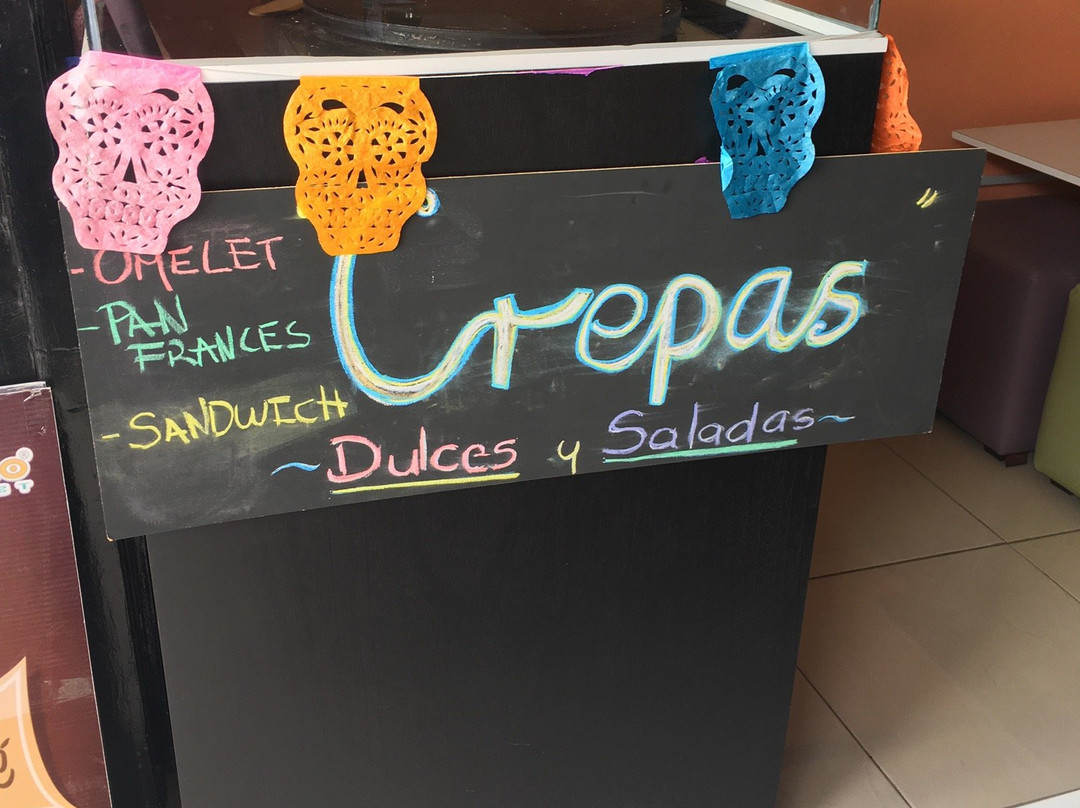 -OMELET
-PAN
FRANCES
-SANDWICH
Crepas
"
~Dulces y Saladas~